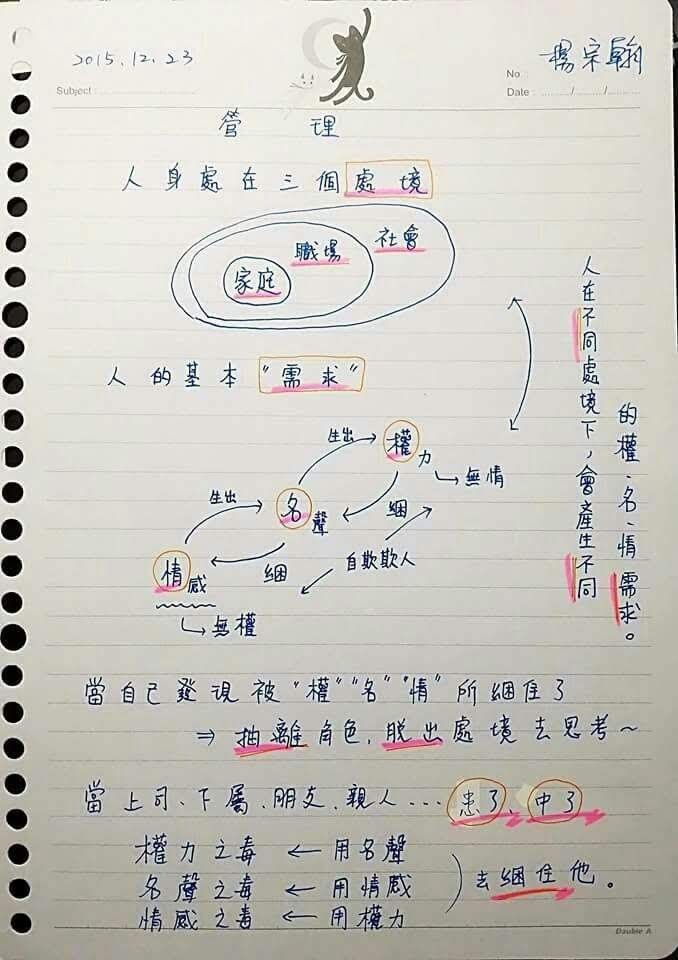 2015.12.23
楊宗翰
No. :
Subject :
Date : ......./......./.......
管 理
人身處在三個處境
社會
職場
家庭
人在不同處境下，會產生不同
的權、名、情需求。
人的基本"需求"
生出
權力
無情
生出
名聲
綑
自欺欺人
情感
綑
無權
當自己發現被"權""名""情"所綑住了
⇒ 抽離角色，脫出處境去思考~
當上司、下屬、朋友、親人... 患了、中了
權力之毒 ← 用名聲
名聲之毒 ← 用情感
去綑住他。
情感之毒 ← 用權力
Double A